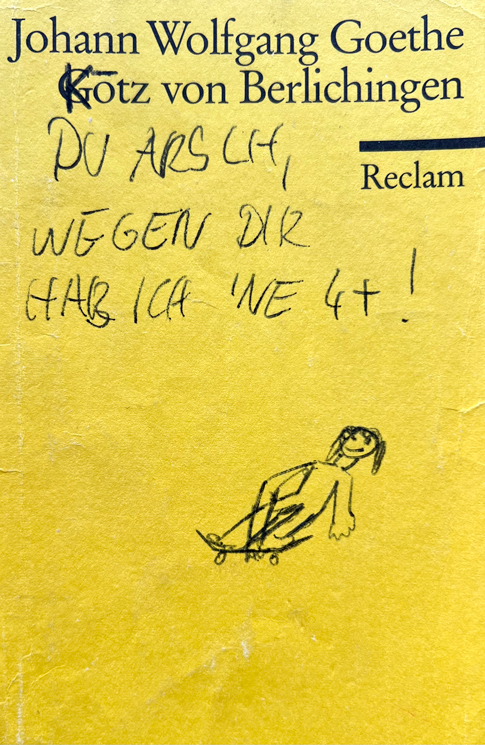 Johann Wolfgang Goethe
Kotz von Berlichingen
Reclam
DU ARSCH,
WEGEN DIR
HAB ICH 'NE 4+!